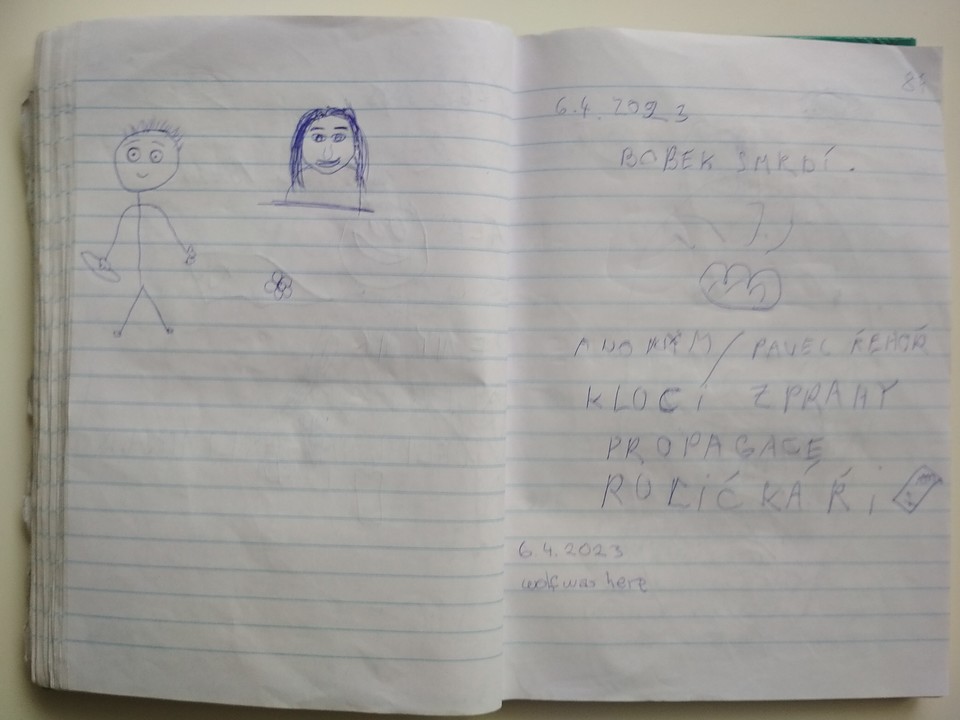 81
6.4.2023
BOBEK SMRDÍ.
/ PAVEL ŘEHOŘ
KLOCI Z PRAHY
PROPAGACE
ROLIČKÁŘI
6.4.2023
wolf was here